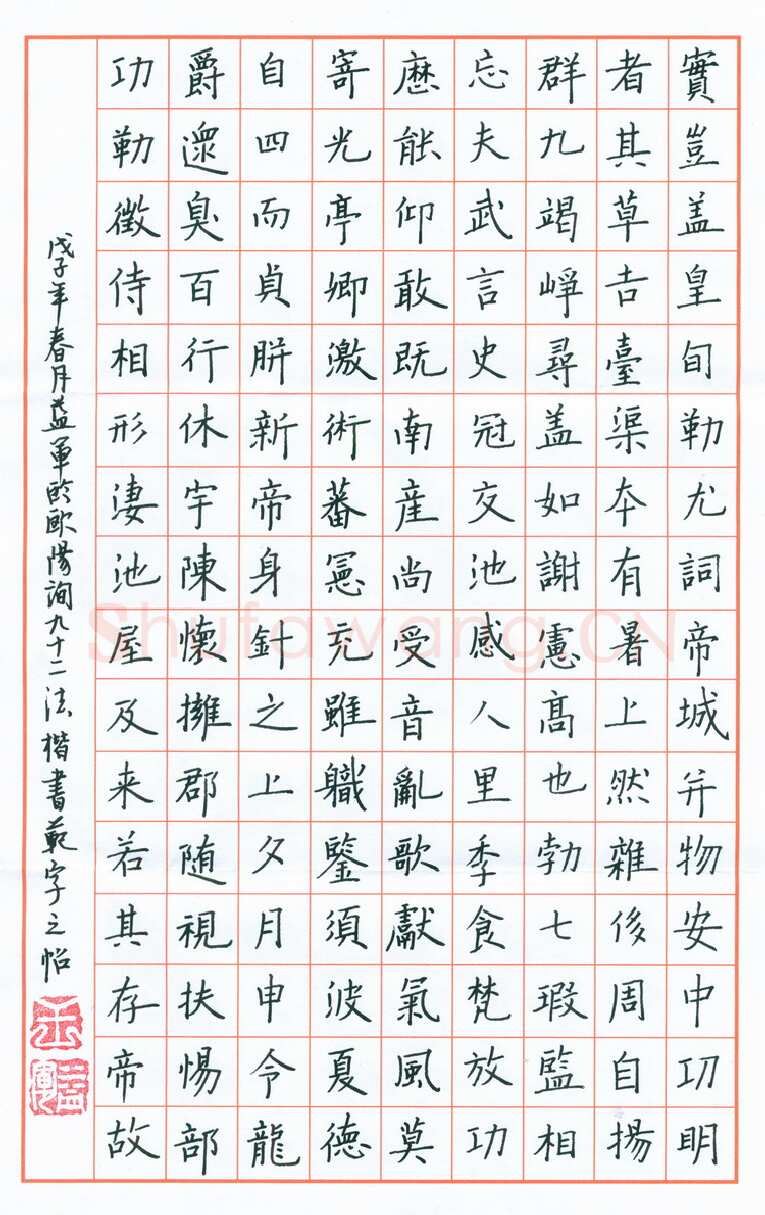 實豈盖皇旬勒尤詞帝城并物安中功明
者其草吉臺渠本有暑上然雜後周自揚
群九竭崢尋盖如謝憲高也勃七瑕監相
忘夫武言史冠交池感人里季食梵放功
歷能仰敢既南産尚受音亂歌獻氣風莫
寄光亭卿激術蕃冕充雖職鑒須波夏德
自四而貞胼新帝身針之上夕月申令龍
爵邈臭百行休宇陳懷擁郡随視扶惕部
功勒徵侍相形淒池屋及来若其存帝故
戊子年春月益軍臨歐陽詢九十二法楷書範字之帖
Shufawang.CN